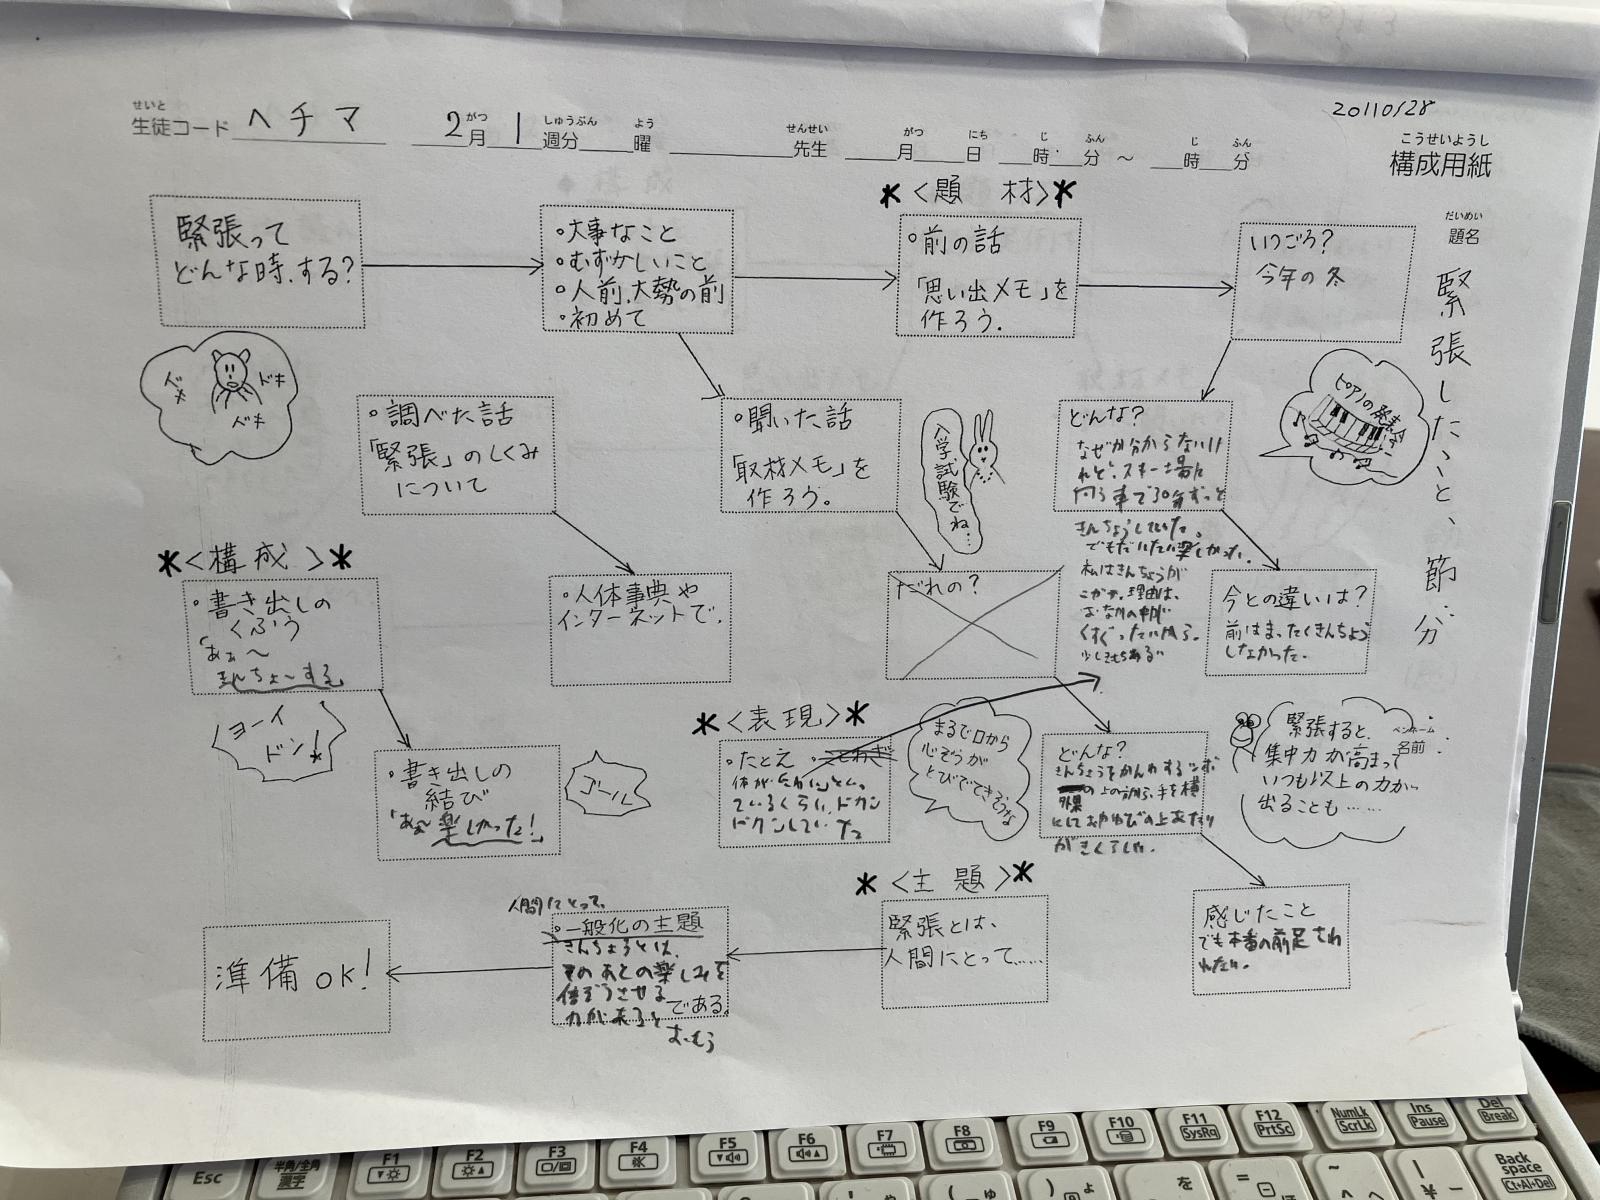 20110128
せいと
生徒コード ヘチマ
がつ
2月
しゅうぶん
1週分
よう
曜
せんせい
先生
がつ にち じ ふん じ ふん
月 日 時 分 ～ 時 分
こうせいようし
構成用紙
だいめい
題名
緊張したこと、節分
ペンネーム
名前
緊張って
どんな時、する?
ドキ
ドキ
ドキ
・大事なこと
・むずかしいこと
・人前、大勢の前
・初めて
*〈題 材〉*
・前の話
「思い出メモ」を
作ろう。
いつごろ?
今年の冬
ピアノの発表会
どんな?
なぜか分からないけ
れど、スキー場に
向う車で30分ずっと
きんちょうしていた。
でもだいたい楽しかった。
私はきんちょうが
理由は、
おなかの中が
くすぐったいから。
今との違いは?
前はまったくきんちょう
しなかった。
・聞いた話
「取材メモ」を
作ろう。
入学試験でね…
だれの?
どんな?
の上の
感じたこと
でも本番の前
・調べた話
「緊張」のしくみ
について
・人体事典や
インターネットで。
緊張すると、
集中力が高まって
いつも以上の力が
出ることも……
*〈構成〉*
・書き出しの
くふう
「あぁ～
きんちょ～する」
ヨーイ
ドン!
・書き出しの
結び
「あぁ～楽しかった!」
ゴール
*〈表現〉*
・たとえ
ているくらい、ドクン
ドクンしてい た
まるで口から
心ぞうが
とびでてきそうな
*〈主 題〉*
緊張とは、
人間にとって……
人間にとって、
・一般化の主題
きんちょうとは、
そのあとの楽しみを
倍ぞうさせる
力があると
である。
おもう
準備OK!
Esc
半角/全角
漢字
F1
F2
F3
F4
F5
F6
F7
F8
F9
F10
F11
SysRq
F12
PrtSc
NumLk
ScrLk
Ins
Pause
Del
Break
Back
space
Ctrl+Al+Del